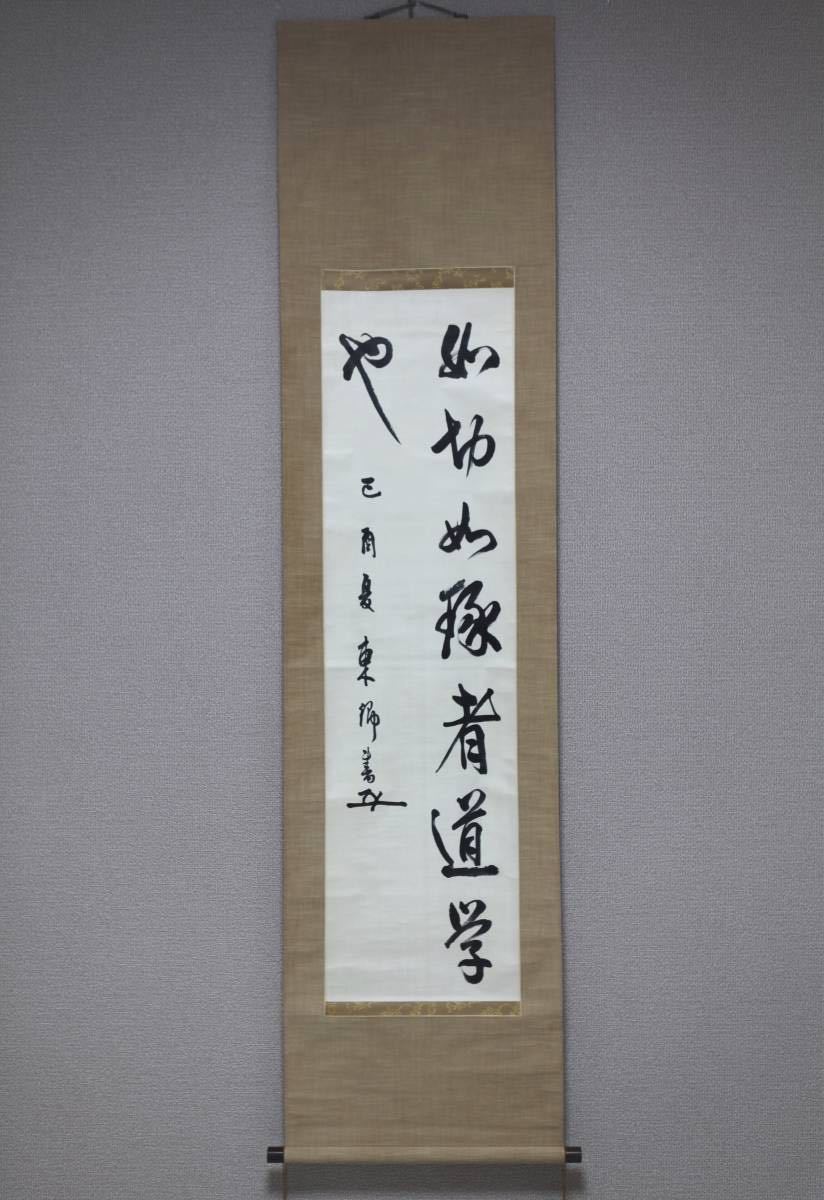 如切如琢者道学
也 己酉夏 東 書